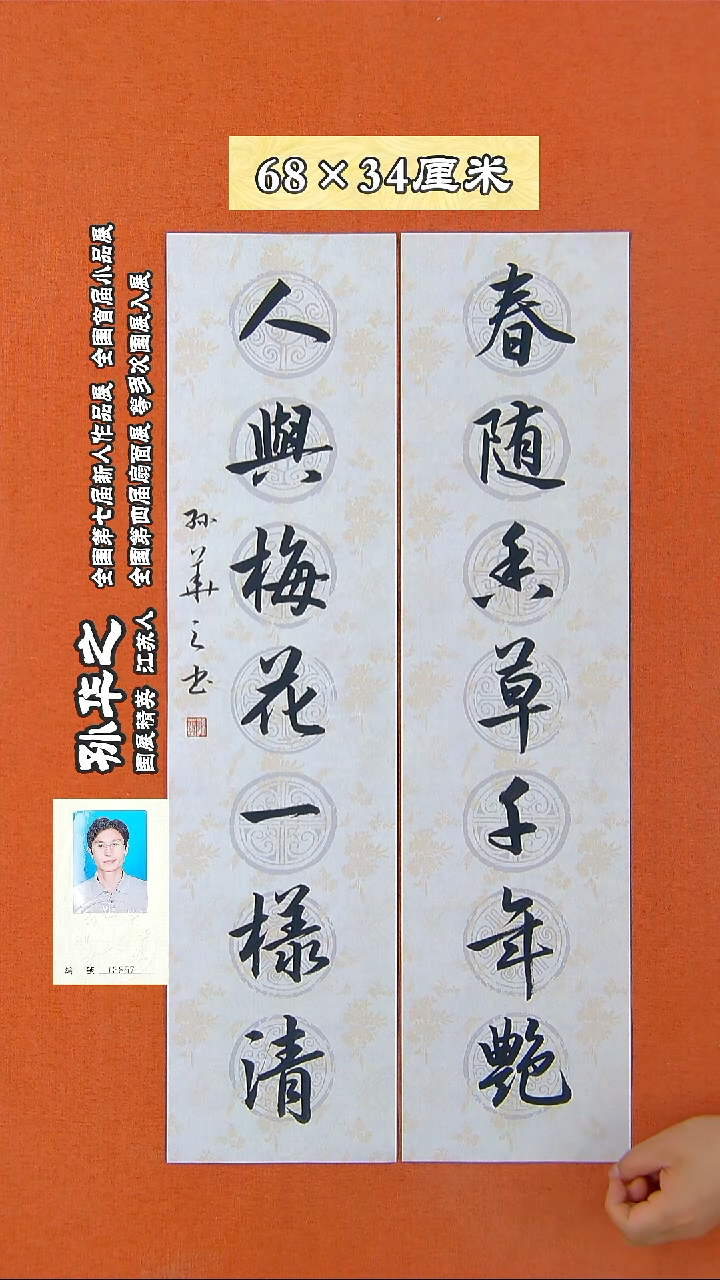 68×34厘米
春随香草千年艷
人與梅花一樣清
孙華之书
孙华之
国展精英 江苏人
全国第七届新人作品展 全国首届小品展
全国第四届扇面展 等多次国展入展
编 號